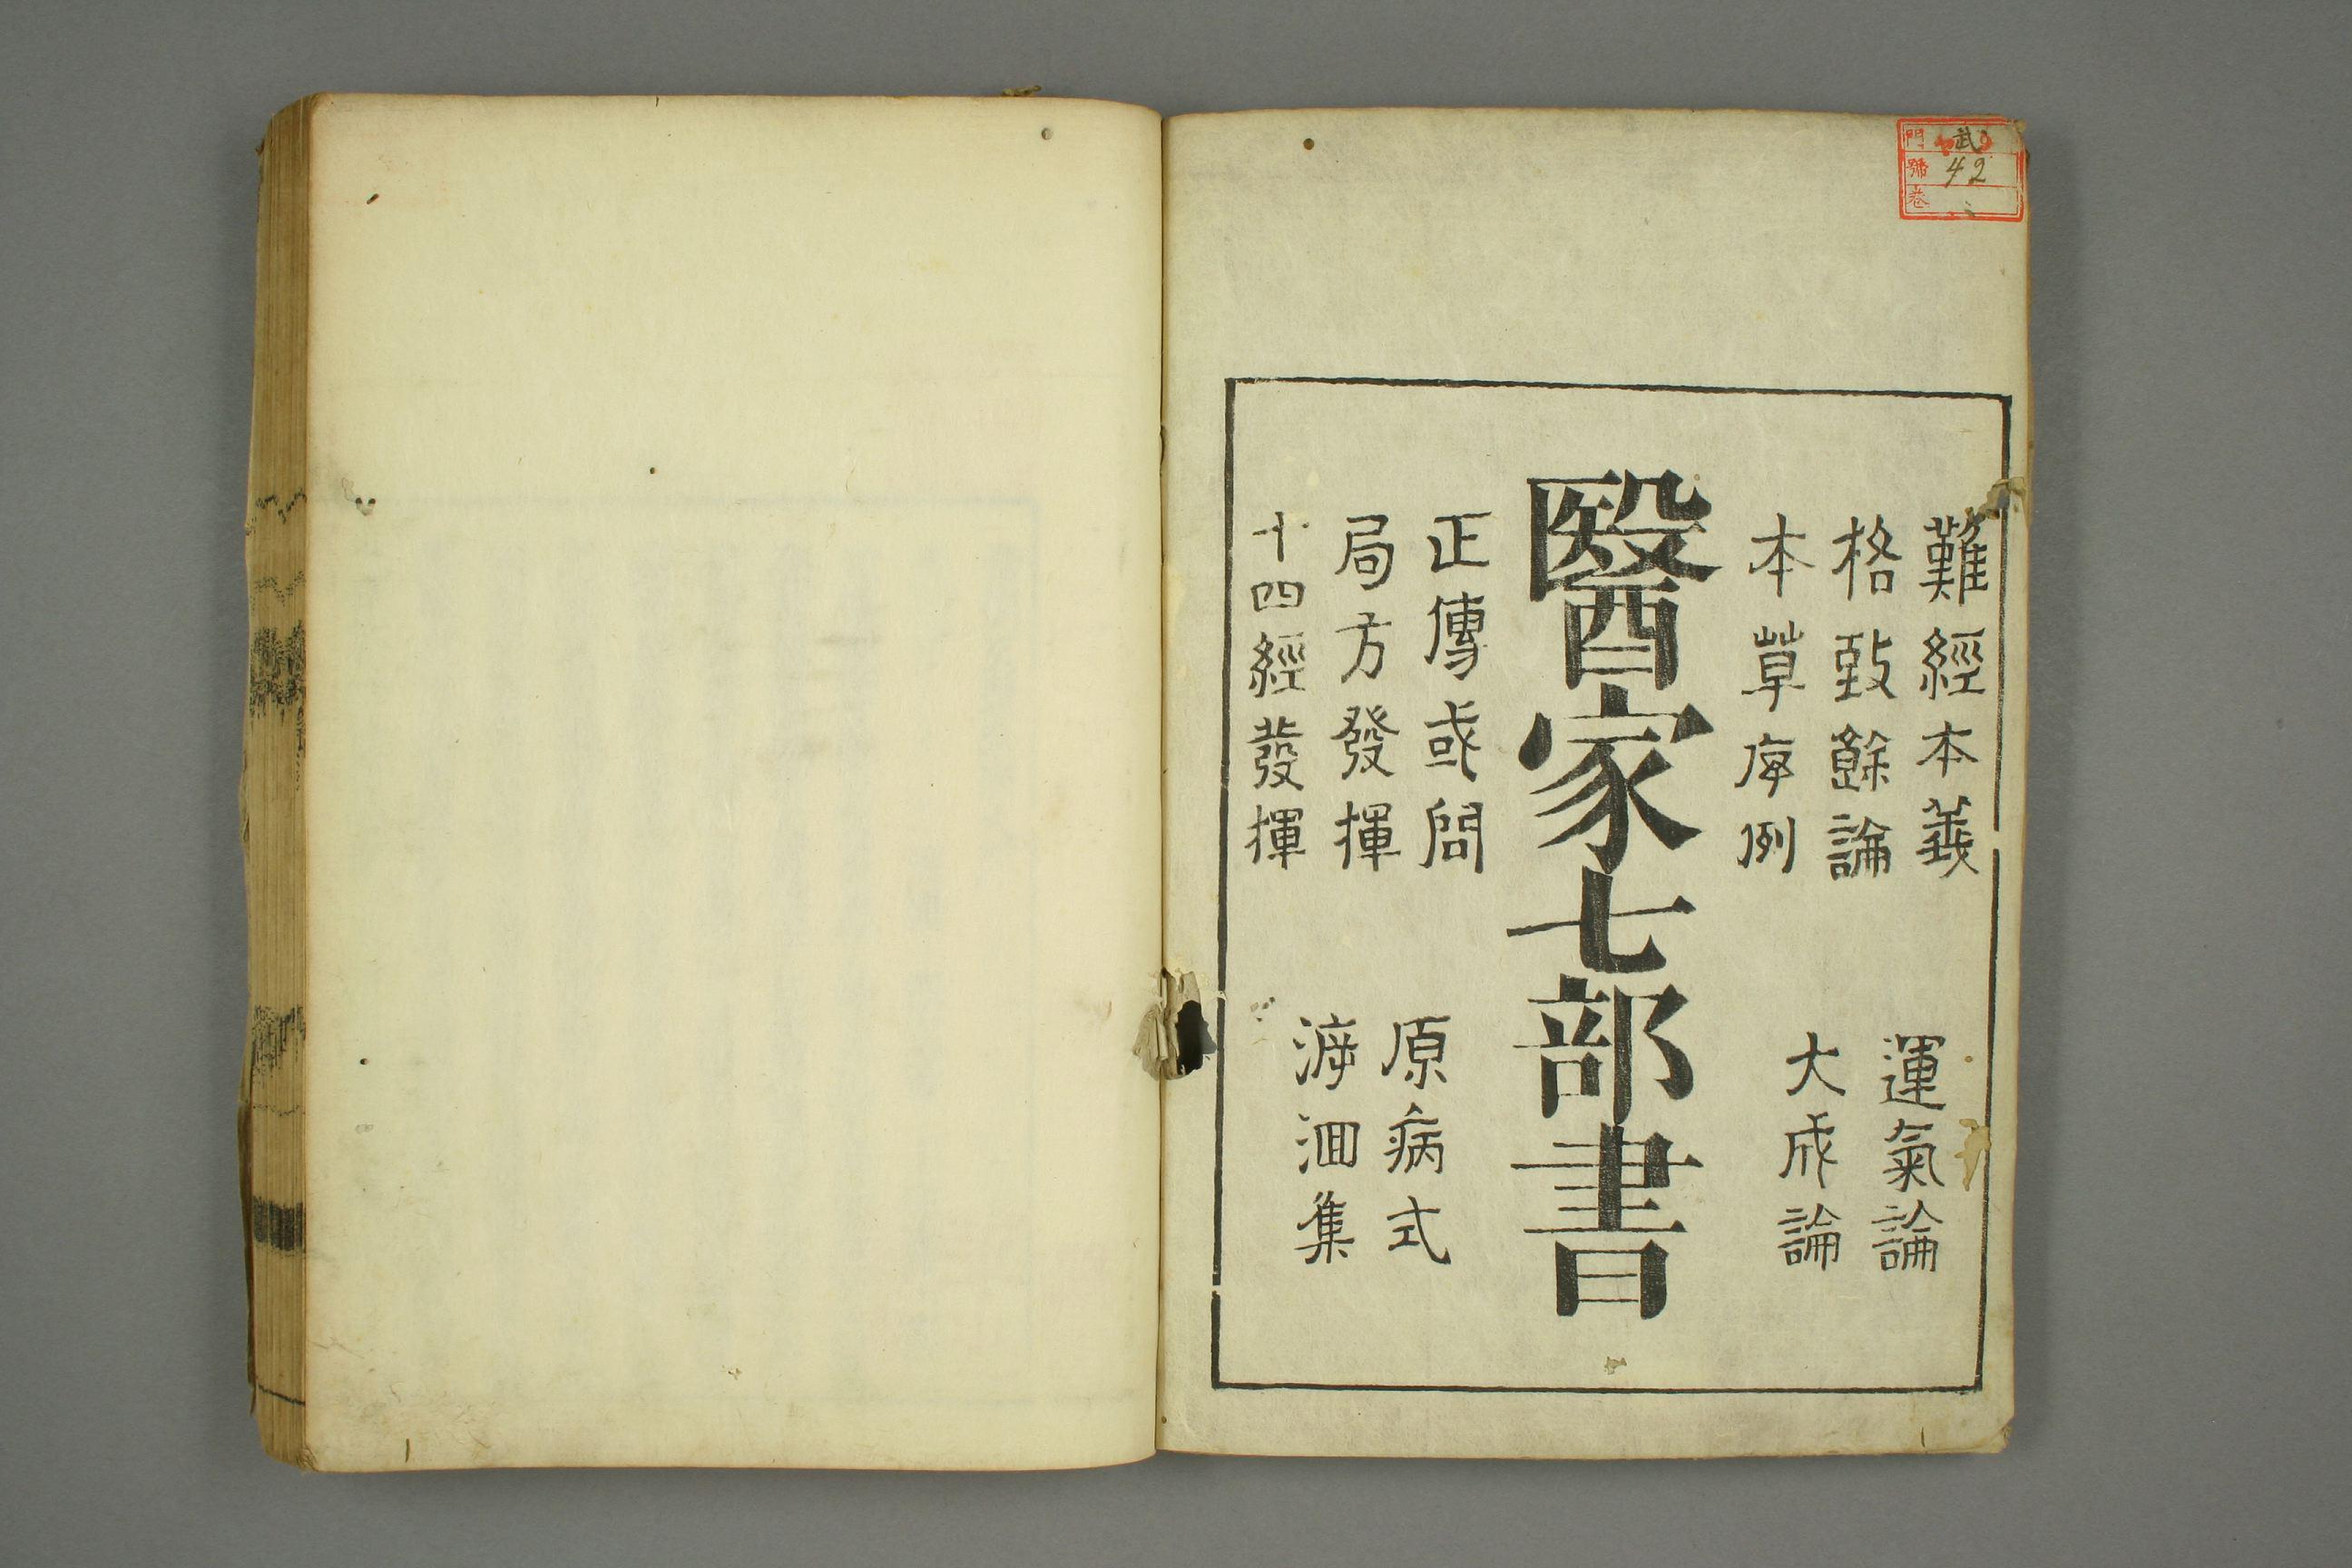 門 武
號 42
卷
難經本義
格致餘論
本草序例
運氣論
大成論
醫家七部書
正傳或問
局方發揮
十四經發揮
原病式
溯洄集